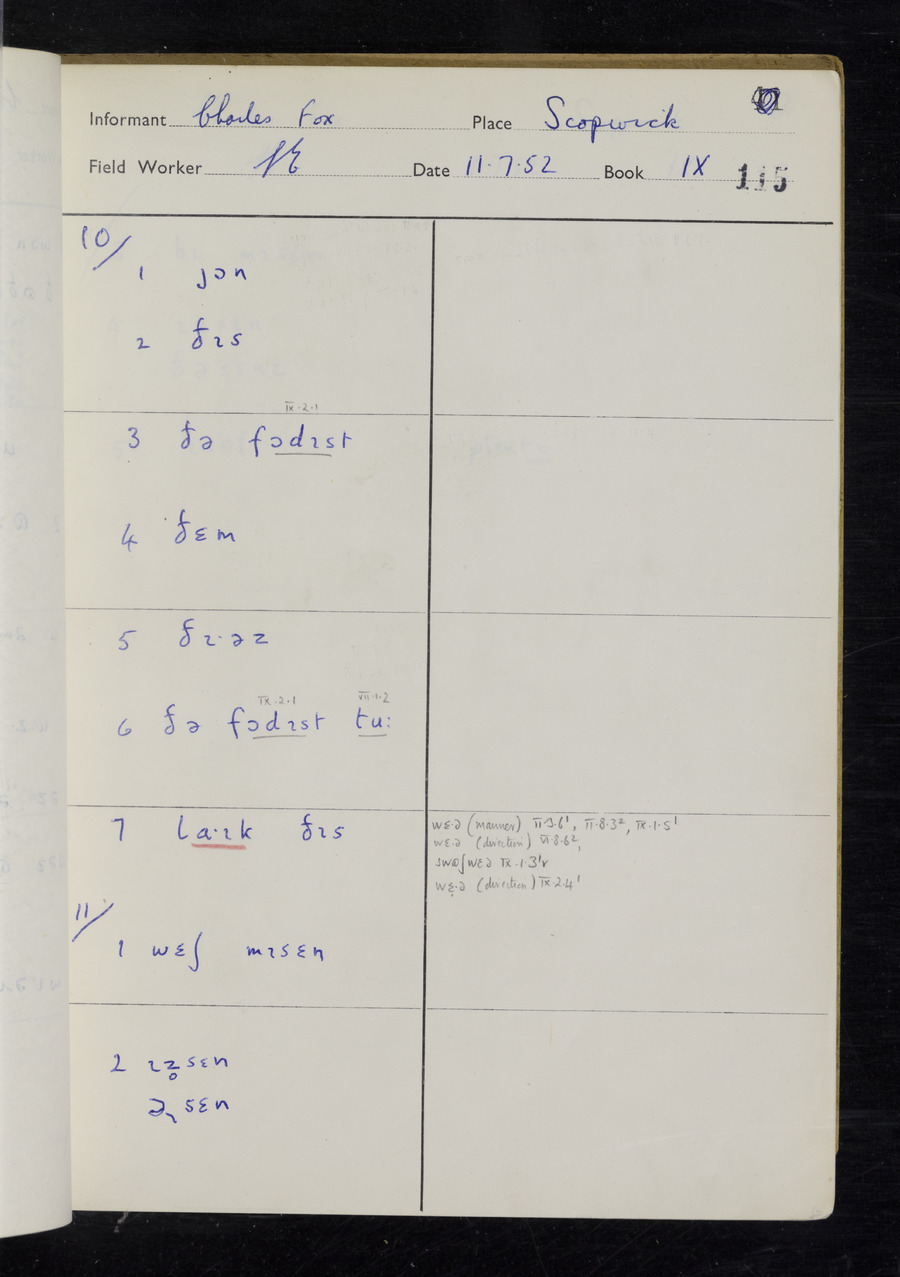 Informant Charles Fox Place Scopwick
Field Worker SE Date 11·7·52 Book IX 115
10/
1 jɔn
2 ðɪs
IX·2·1
3 ðə fɔdɪst
4 ðɛm
5 ðɪ·əz
IX·2·1 VII·1·2
6 ðə fɔdɪst tu:
7 la·ɪk ðɪs
wɛ·ə (manner) II·9·6¹, II·8·3², IX·1·5¹
wɛ·ə (direction) VI·8·6²,
wɛə IX·1·3¹v
wɛ·ə (direction) IX·2·4¹
11/
1 wɛʃ mɪsɛn
2 ɪz̥sɛn
sɛn